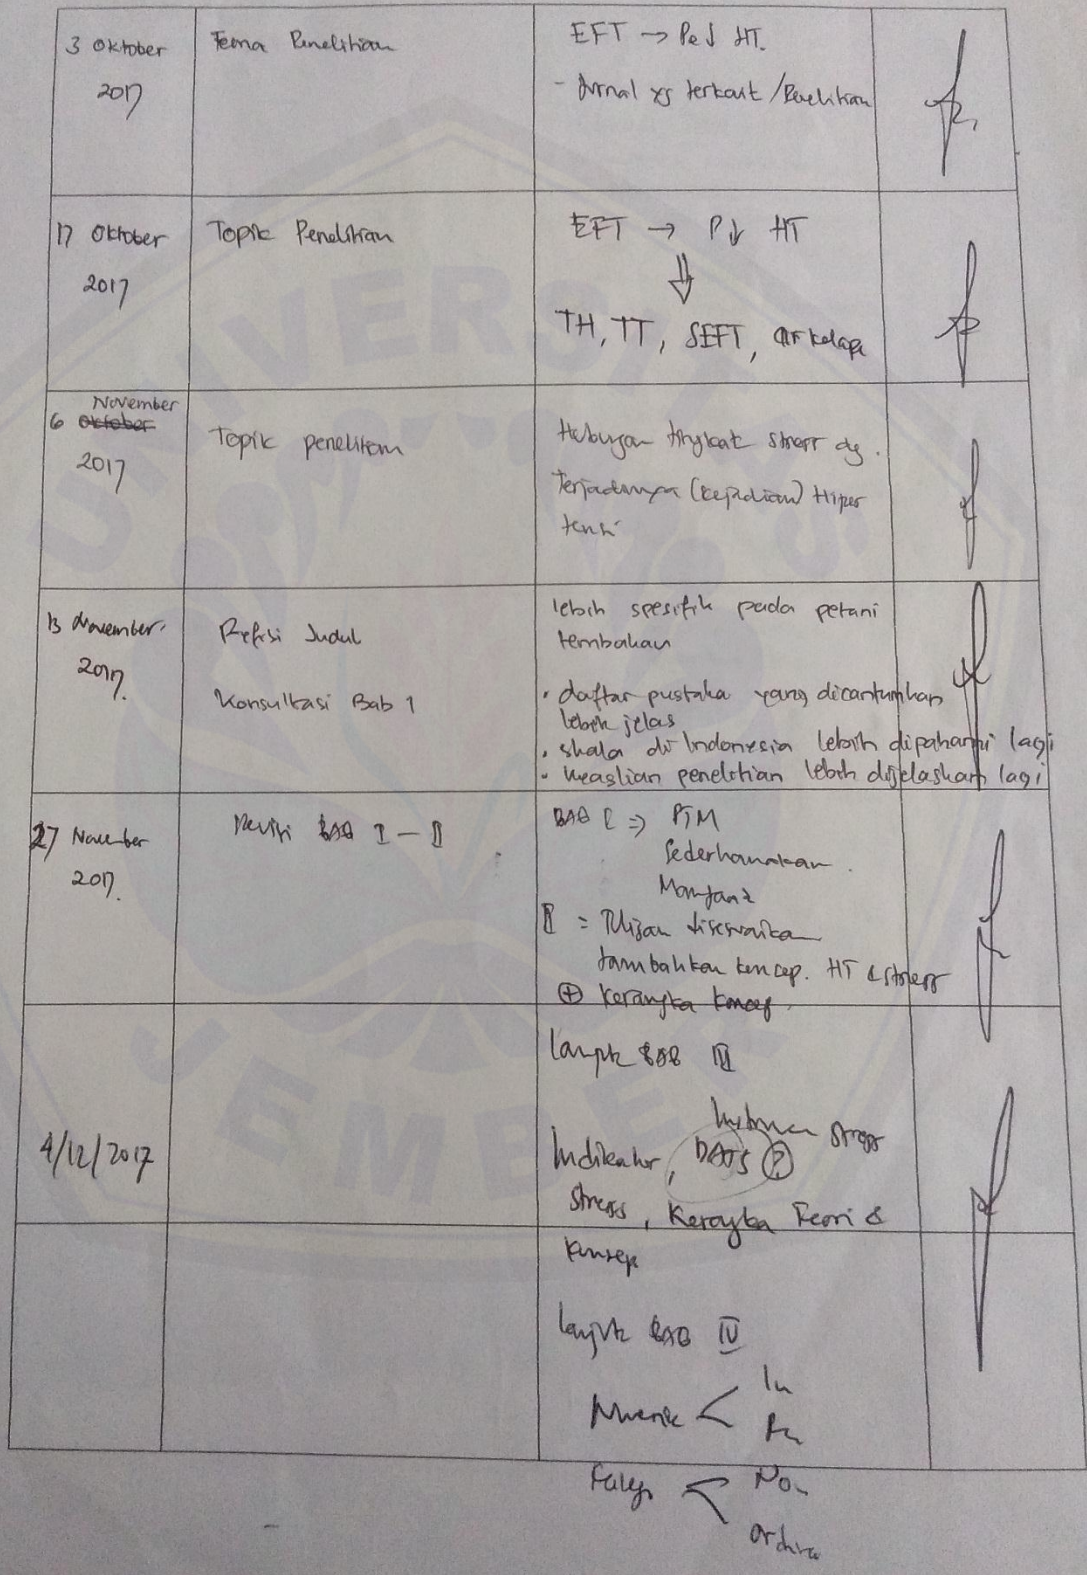 3 Oktober
2017
Tema Penelitian
EFT → Pe↓ HT.
- Jurnal yg terkait / Penelitian
17 Oktober
2017
Topik Penelitian
EFT → P↓ HT
⇓
TH, TT, SEFT, air kelapa
November
6 Oktober
2017
Topik penelitian
Hubungan tingkat stress dg.
terjadinya (kejadian) Hiper
tensi
13 November
2017.
Refisi Judul
Konsultasi Bab 1
lebih spesifik pada petani
tembakau
• daftar pustaka yang dicantumkan
lebih jelas
• skala di Indonesia lebih dipahami lagi
• keaslian penelitian lebih dijelaskan lagi
27 November
2017.
Revisi BAB I - II
BAB I ⇒ PTM
Sederhanakan.
Manfaat
II = Tulisan disesuaikan
tambahkan konsep. HT & stress
⊕ kerangka konsep.
lanjut BAB III
4/12/2017
Indikator, DASS ?
stress
stress, Kerangka Teori &
konsep
lanjut BAB IV
Numerik < In
Ra
Kateg < No
ordina
UNIVERSITAS
JEMBER